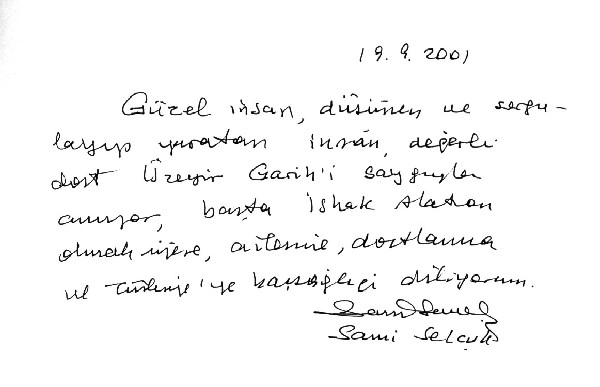 19.9.2001
Güzel insan, düşünen ve sorgu-
layıp yaratan insan, değerli
dost Üzeyir Garih'i saygıyla
anıyor, başta İshak Alaton
olmak üzere, ailesine, dostlarına
ve Türkiye'ye başsağlığı diliyorum.
Sami Selçuk